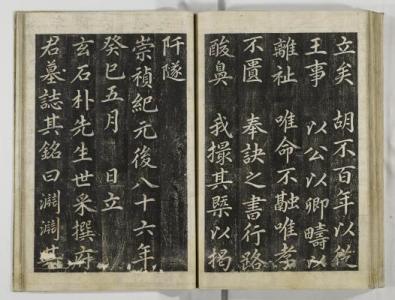 立矣 胡不百年以從
王事 以公以卿疇以
離祉 唯命不融唯孝
不匱 奉訣之書行路
酸鼻 我撮其槩以揭
阡隧
崇禎紀元後八十六年
癸巳五月 日立
玄石朴先生世采撰府
君墓誌其銘曰淵淵其